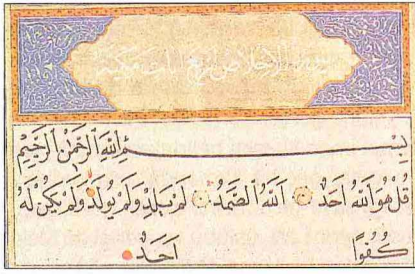 سورة الإخلاص اربع آيات مكية
بِسْمِ اللَّهِ الرَّحْمَٰنِ الرَّحِيمِ
قُلْ هُوَ اللَّهُ أَحَدٌ اللَّهُ الصَّمَدُ لَمْ يَلِدْ وَلَمْ يُولَدْ وَلَمْ يَكُنْ لَهُ
كُفُوًا أَحَدٌ